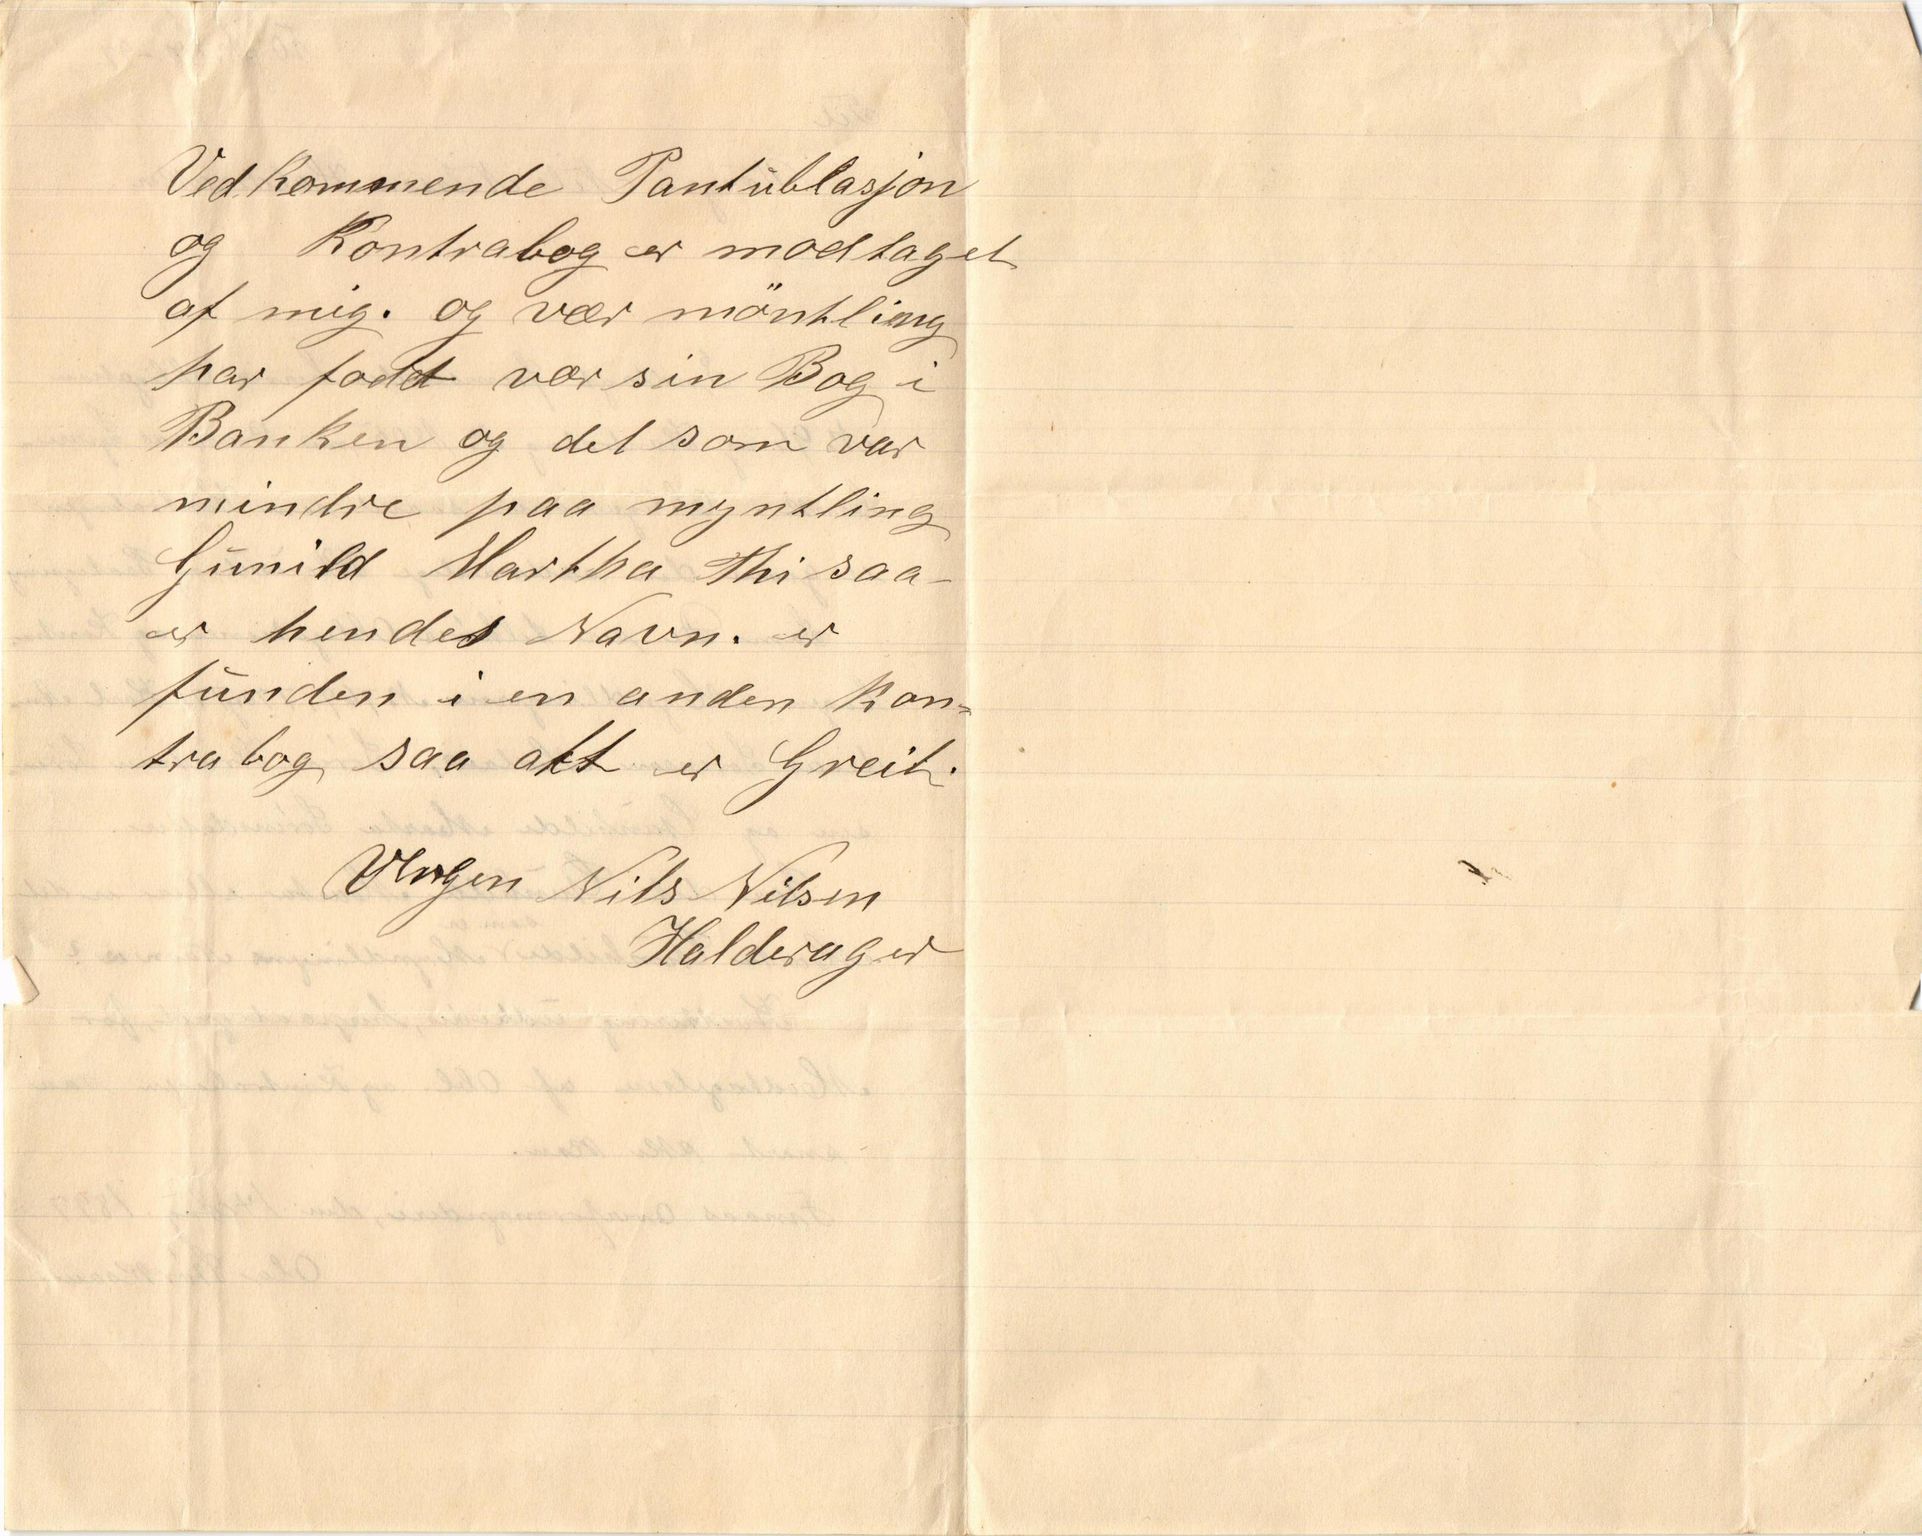 Vedkommende Pantublasjon
og Kontrabog er modtaget
af mig. og vær möntling
har fodt vær sin Bog i
Banken og det som var
mindre paa myntling
Gunild Martha Thi saa-
er hendes Navn. er
funden i en anden Kon=
trabog saa att er Greit.
Nils Nilsen
Halderager